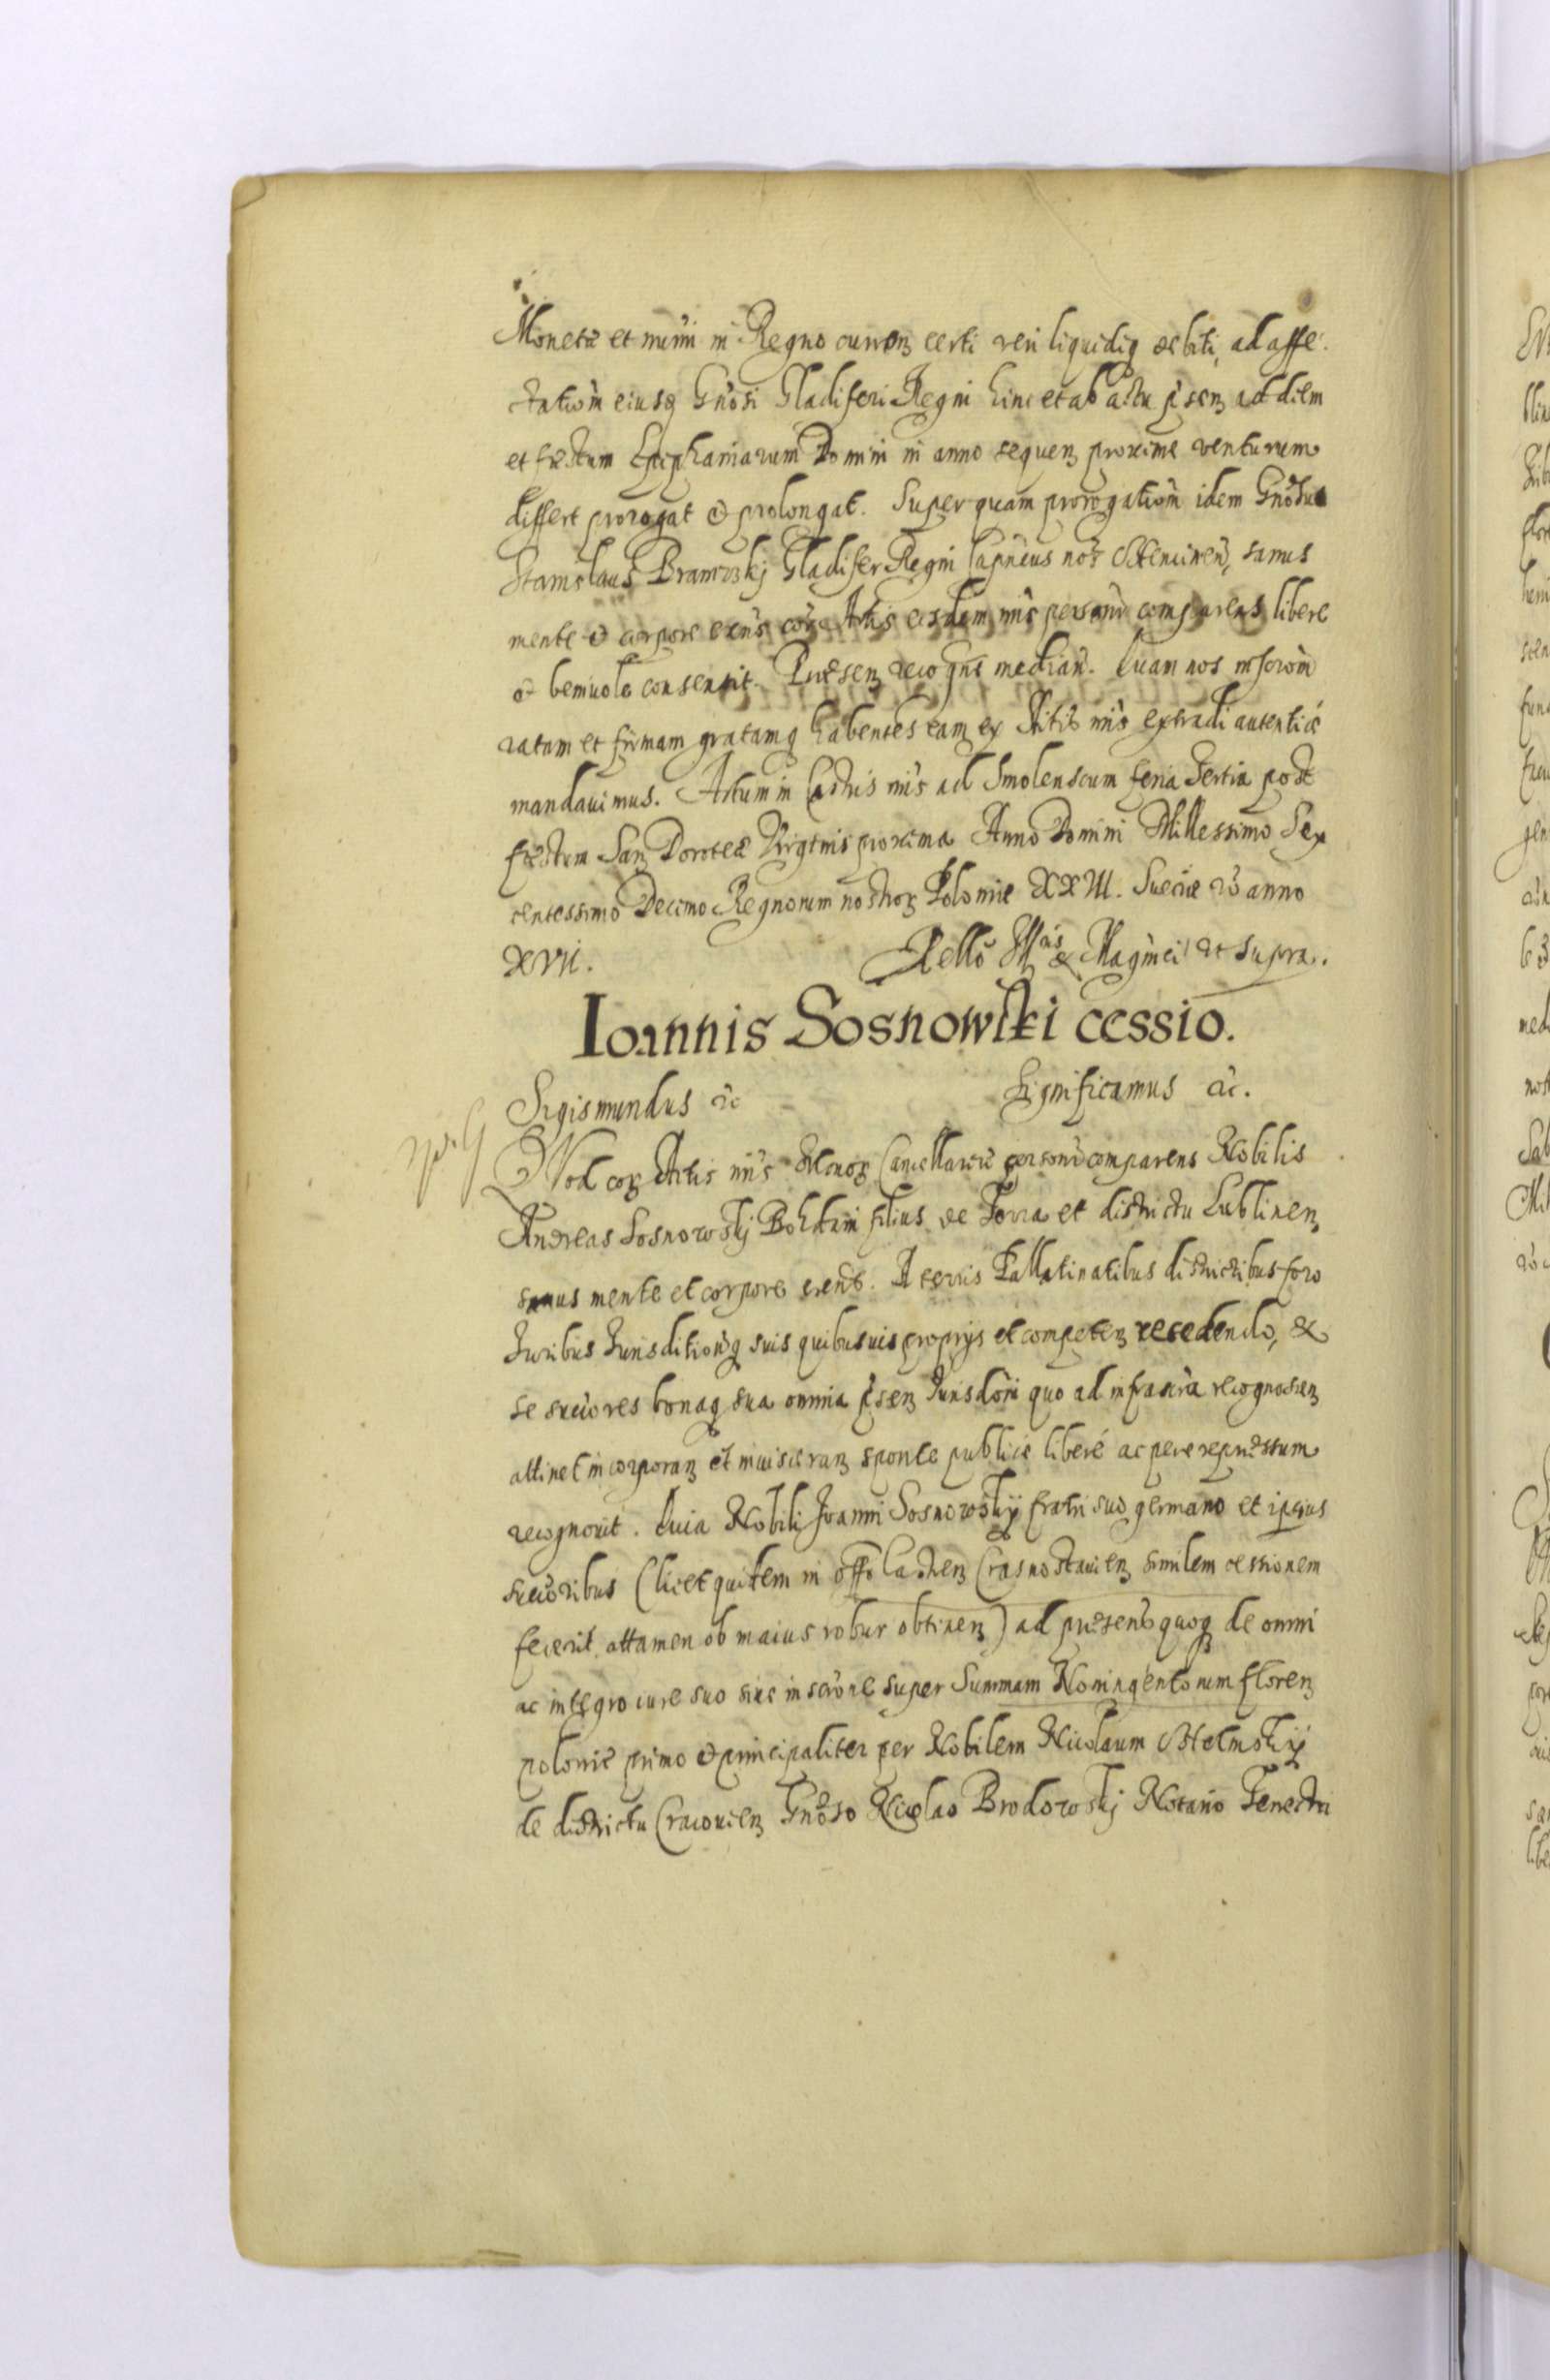 Monetæ et numi in Regno curren certi veri liquidiq debiti, ad affe
ctatiom eiusq Gnosi Gladiferi Regni hinc et ab actu psen ad diem
et festum Epiphaniarum Domini in anno sequen proxime venturum
differt prorogat et prolongat. Super quam prorogatiom idem Gnosus
Stanislaus Gladifer Regni Capneus nos sanus
mente et corpore exns cora Actis eisdem nris personr comparens libere
et beniuole consensit. Præsen recogne median. Quam nos inscrom
ratam et firmam gratamq habentes eam ex Actis nris extradi autenticé
mandauimus. Actum in Castris nris ad Smolenscum feria tertia post
festum San Doroteæ Virginis proxima Anno Domini Millessimo Sex
centessimo Decimo Regnorum nostror Poloniæ XXIII. Sueciæ vo anno
XVII. Rello Mag̃nci ut supra.
Ioannis Sosnowski cessio.
Sigismundus etc Significamus etc.
Quod cor Actis nris Menor Cancellariæ personr comparens Nobilis
Andreas Sosnowskj Bohdani filius de Terra et districtu Lublinen
sanus mente et corpore exens. A terris Pallatinatibus districtibus foro
Iuribus Iurisditionq suis quibusuis proprijs et competen recedendo, et
se succores bonaq sua omnia psen Iurisdoni quo ad infrascra recognoscen
attinet incorporan et inuisceran sponte publicè liberè ac per expressum
recognouit. Quia Nobili Joanni Sosnowskij fratri suo germano et ipsius
succoribus (licet quidem in offo Castren Crasnostauien similem cessionem
fecerit attamen ob maius robur obtinen) ad præsens quoq de omni
ac integro iure suo siue inscrone super Summam Noningentorum floren
polonic primo et principaliter per Nobilem Nicolaum
de districtu Cracouien Gnoso Nicolao Brodowskj Notario Terrestri